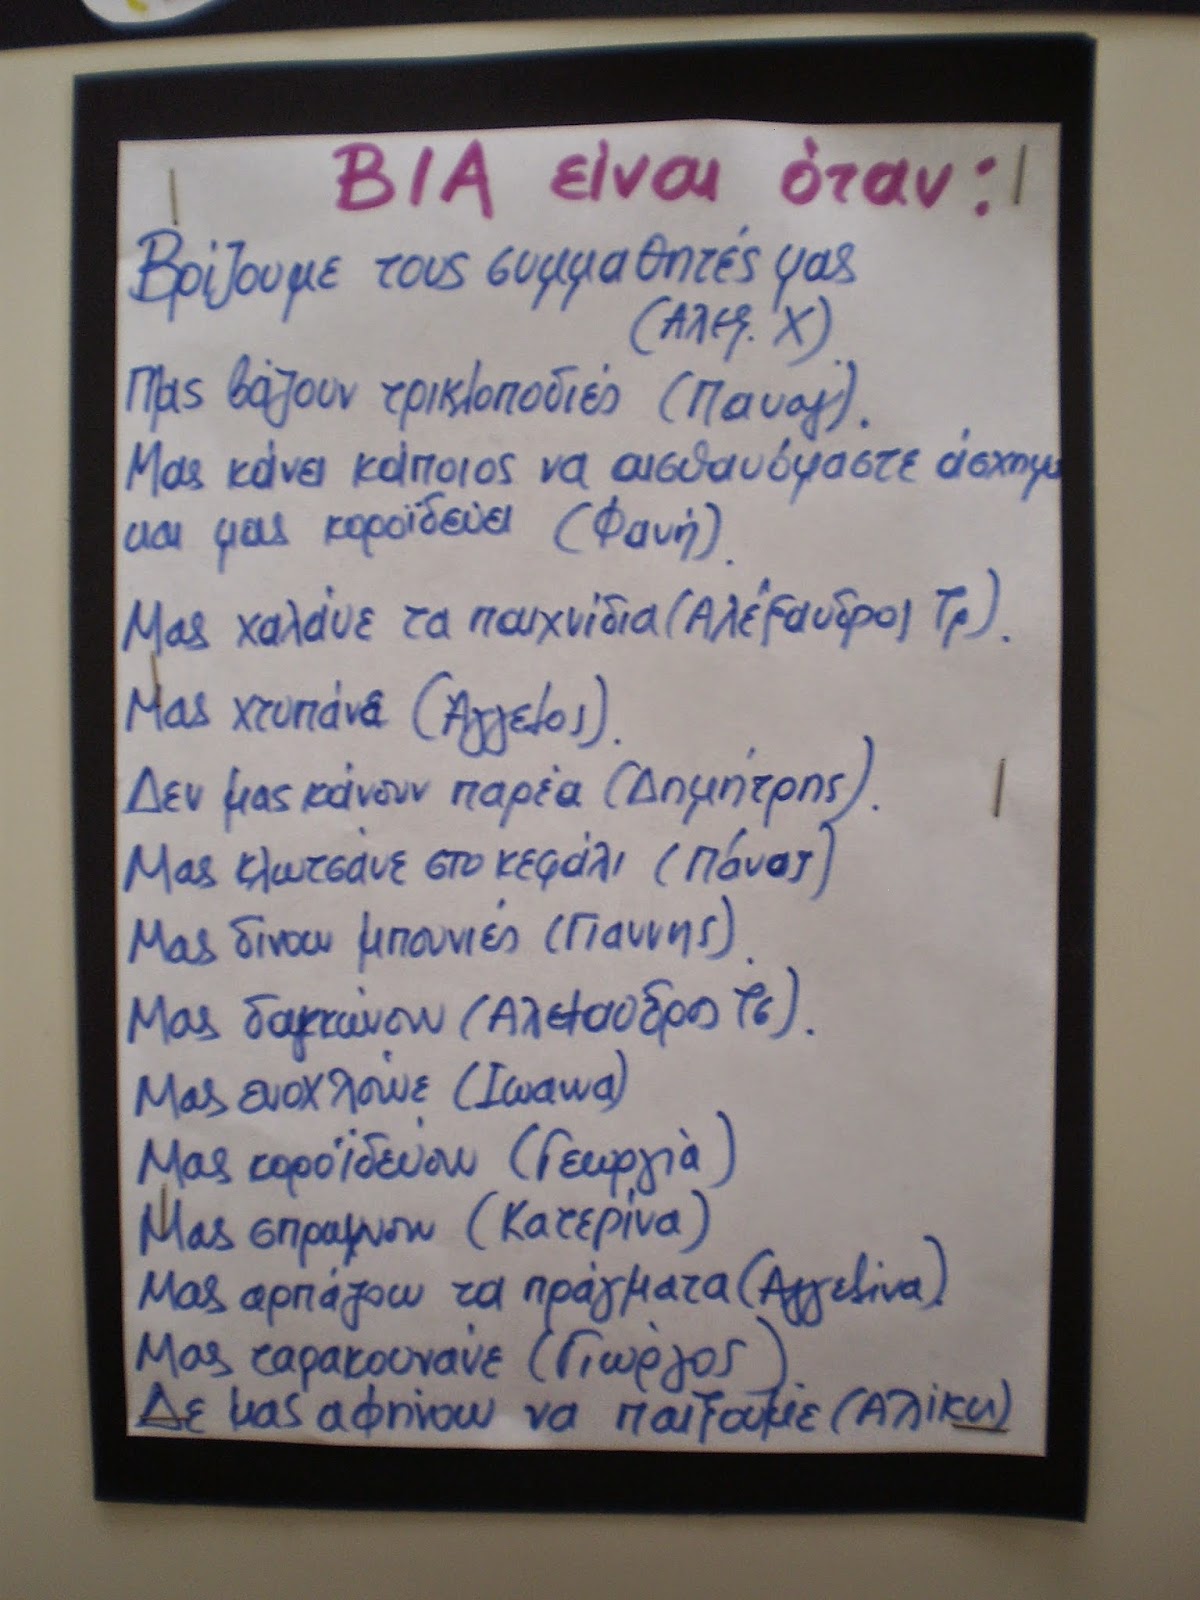 ΒΙΑ είναι όταν:
Βρίζουμε τους συμμαθητές μας
(Αλεξ. Χ).
Μας βάζουν τρικλοποδιές (Παναγ).
Μας κάνει κάποιος να αισθανόμαστε άσχημα
και μας κοροϊδεύει (Φανή).
Μας χαλάνε τα παιχνίδια (Αλέξανδρος Τρ).
Μας χτυπάνε (Άγγελος).
Δεν μας κάνουν παρέα (Δημήτρης).
Μας κλωτσάνε στο κεφάλι (Πάνος)
Μας δίνουν μπουνιές (Γιάννης).
Μας δαγκώνουν (Αλεξανδρος Τσ).
Μας ενοχλούνε (Ιωαννα)
Μας κοροϊδεύουν (Γεωργία)
Μας σπρώχνουν (Κατερίνα)
Μας αρπάζουν τα πράγματα (Αγγελίνα).
Μας ταρακουνάνε (Γιώργος)
Δε μας αφήνουν να παίξουμε (Αλίκη)